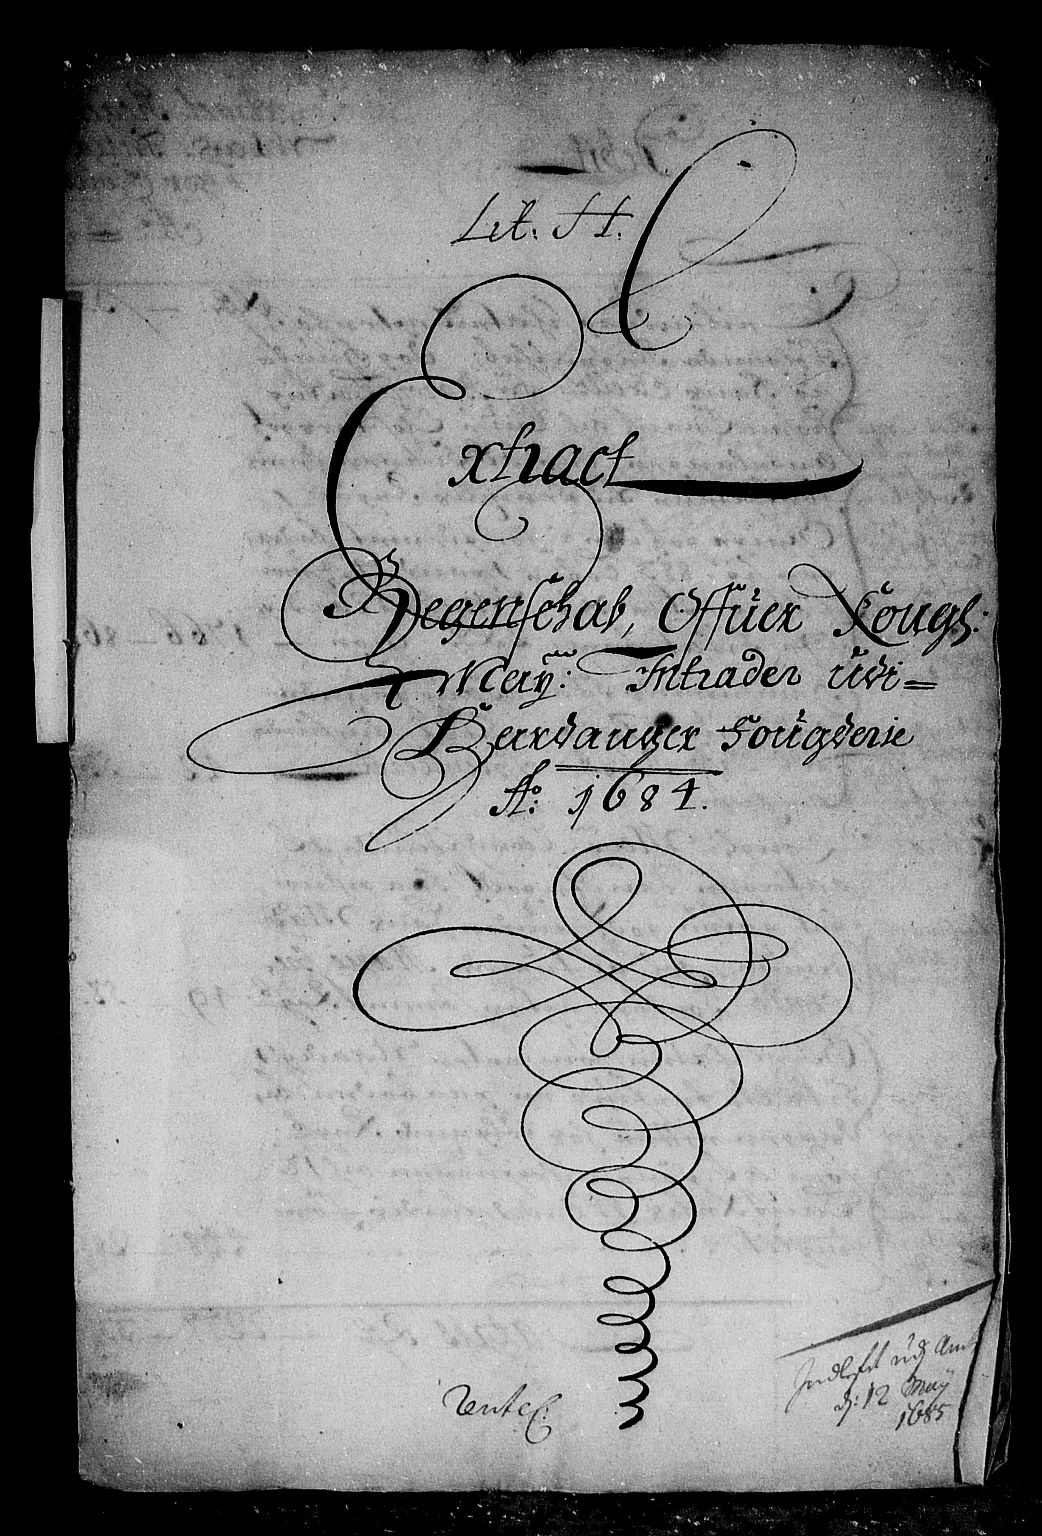 Lit. H.
Extract
Regenschab, Offuer Kongl:
Mayⁿ: Intrader udi
Hardanger Fougderie
Ao: 1684.
Indleft udj
d: 12 Maij
1685